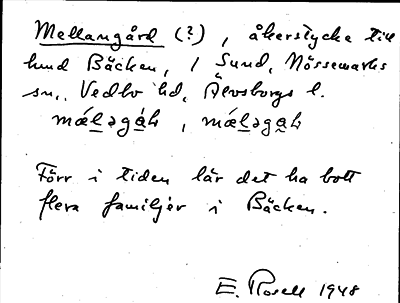 Mellangård (?), åkerstycke till
hmd Bäcken, 1 Sund, Nössemarks
sn., Vedbo hd, Älvsborgs l.
Förr i tiden lär det ha bott
flera familjer i Bäcken.
E. Rosell 1948